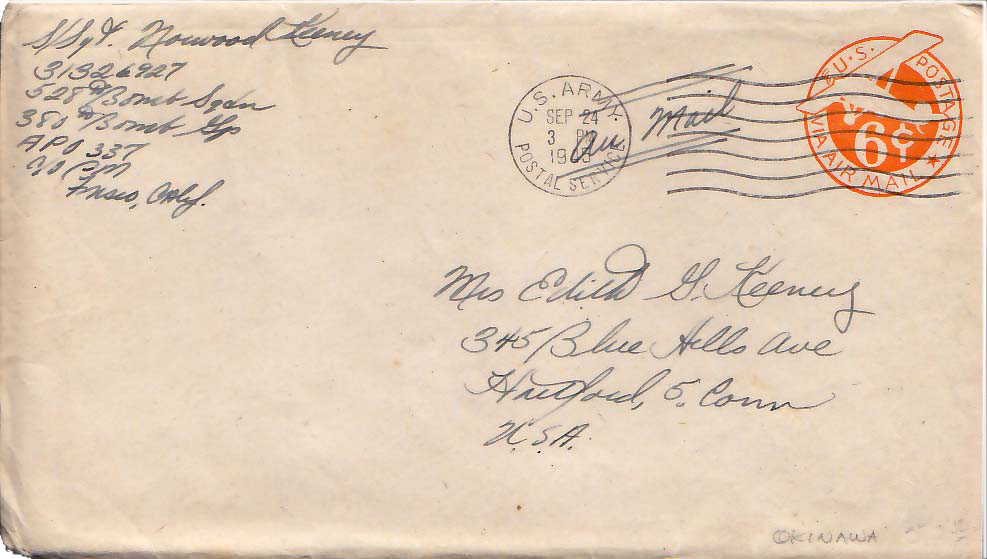 S/Sgt. Norwood Keeney
31326927
528th Bomb Sqdn
380th Bomb Gp
APO 337
c/o PM
Frisco, Calif.
U.S. ARMY
SEP 24
3 PM
1945
POSTAL SERVICE
Air Mail
U.S. POSTAGE
6¢
VIA AIR MAIL
Mrs Edith G. Keeney
345 Blue Hills Ave
Hartford, 5. Conn
U.S.A.
OKINAWA